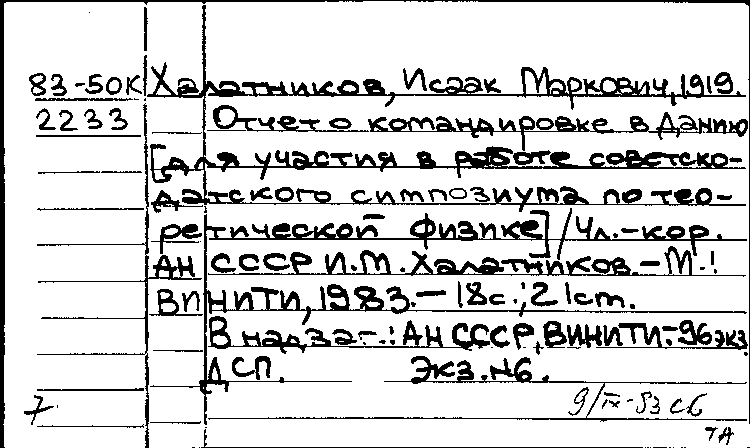 83-50К Халатников, Исаак Маркович, 1919.
2233 Отчет о командировке в Данию
[для участия в работе советско-
датского симпозиума по тео-
ретической физике] / Чл.-кор.
АН СССР И.М. Халатников. - М.:
ВИНИТИ, 1983. - 18с.; 21cm.
В надзаг.: АН СССР, ВИНИТИ. - 96 экз
ДСП. Экз. №6.
9/IX-83 сб
7
7А